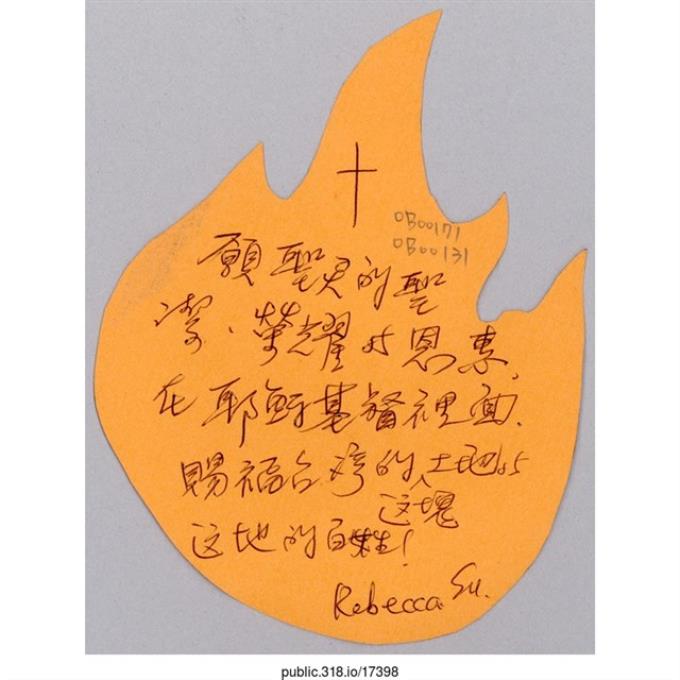 OB00171
OB00131
願聖灵的聖
潔、榮耀与恩惠,
在耶穌基督裡面,
賜福台湾的土地与
这塊
这地的百姓!
Rebecca Su.
public.318.io/17398